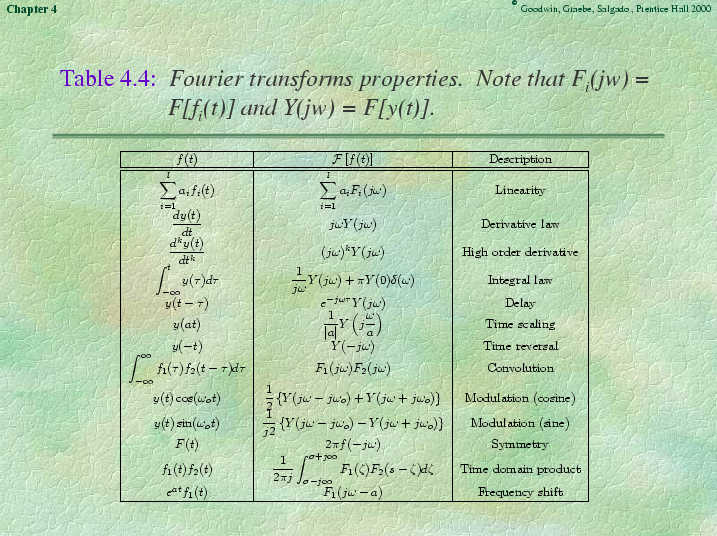 Chapter 4
© Goodwin, Graebe, Salgado, Prentice Hall 2000
Table 4.4: Fourier transforms properties. Note that Fᵢ(jw) =
F[fᵢ(t)] and Y(jw) = F[y(t)].
f(t) F[f(t)] Description
∑_{i=1}^{l} aᵢfᵢ(t) ∑_{i=1}^{l} aᵢFᵢ(jω) Linearity
dy(t)/dt jωY(jω) Derivative law
dᵏy(t)/dtᵏ (jω)ᵏY(jω) High order derivative
∫_{−∞}^{t} y(τ)dτ 1/(jω) Y(jω) + πY(0)δ(ω) Integral law
y(t − τ) e^{−jωτ}Y(jω) Delay
y(at) 1/|a| Y(j ω/a) Time scaling
y(−t) Y(−jω) Time reversal
∫_{−∞}^{∞} f₁(τ)f₂(t − τ)dτ F₁(jω)F₂(jω) Convolution
y(t) cos(ωₒt) 1/2 {Y(jω − jωₒ) + Y(jω + jωₒ)} Modulation (cosine)
y(t) sin(ωₒt) 1/j2 {Y(jω − jωₒ) − Y(jω + jωₒ)} Modulation (sine)
F(t) 2πf(−jω) Symmetry
f₁(t)f₂(t) 1/2πj ∫_{σ−j∞}^{σ+j∞} F₁(ζ)F₂(s − ζ)dζ Time domain product
e^{at}f₁(t) F₁(jω − a) Frequency shift